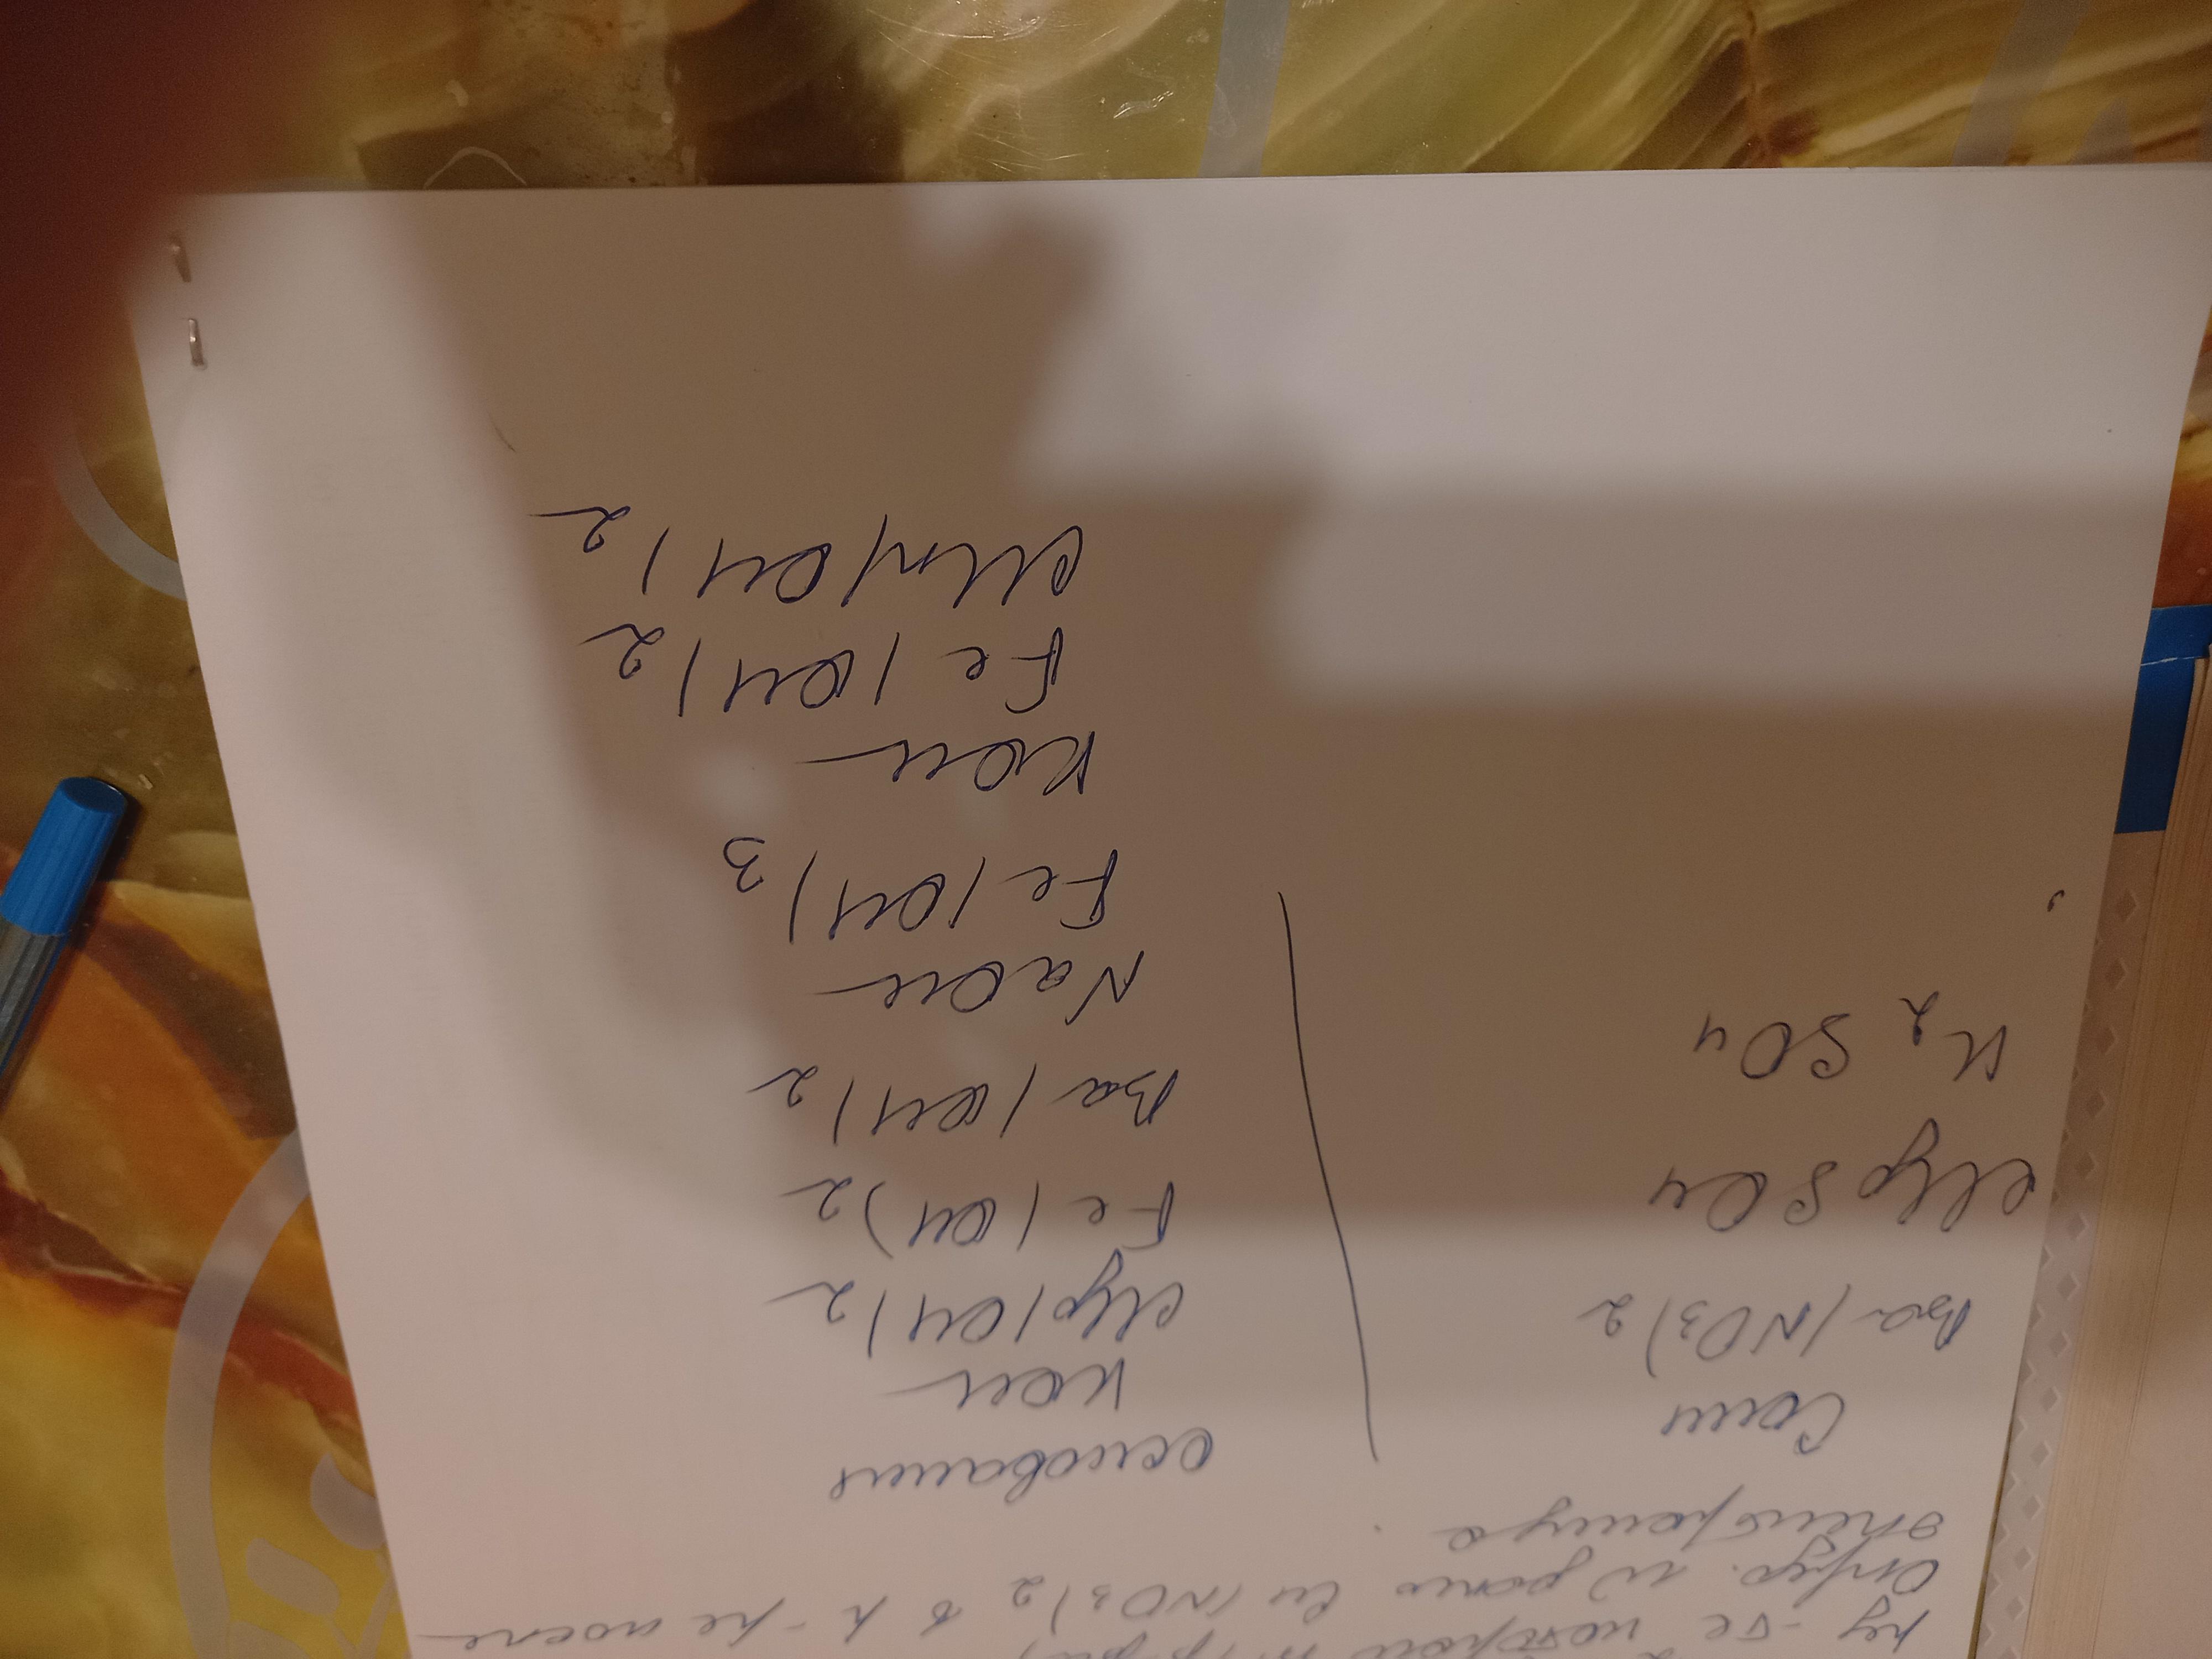 Cu(NO3)2 в р-ре после
электролиза.
Соли
Ba(NO3)2
MgSO4
K2SO4
основания
KOH
Mg(OH)2
Fe(OH)2
Ba(OH)2
NaOH
Fe(OH)3
KOH
Fe(OH)2
Mn(OH)2